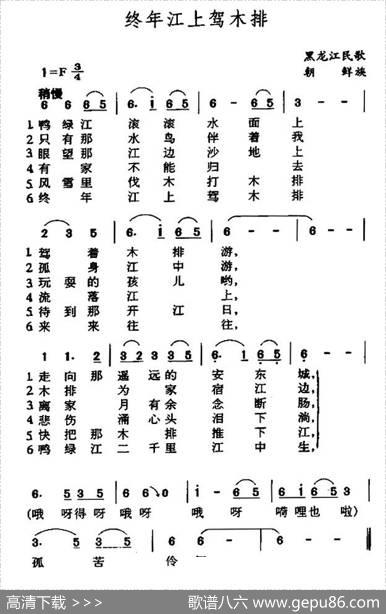 终年江上驾木排
黑龙江民歌
朝 鲜族
1=F 3/4
稍慢
6 6 6 5 | 6. i 6 5 | 6 5 6 5 | 3 - - |
1. 鸭绿江 滚滚 水面上
2. 只有那 水鸟 伴着我
3. 眼望那 江边 沙地上
4. 有家 不能归去
5. 风雪里 伐木 打木排
6. 终年 江上 驾木排
2 3 5 | 6. i 6 5 | 6 - - | 6 - - |
1. 驾着木排游,
2. 孤身江中游,
3. 玩耍的孩儿哟,
4. 流落江上,
5. 待到那开江日,
6. 来来往往,
1 1. 2 | 3 2 3 2 3 5 | 6. i 6 5 | 6 - - |
1. 走向那遥远的 安东城,
2. 木排为家宿江边,
3. 离家月有余 念断肠,
4. 悲伤涌心头 泪下淌,
5. 快把那木排 推下江,
6. 鸭绿江二千里 江中生,
6. 5 3 5 | 6 5 6 0 | i - 6 5 | 6 i 6 5 3 |
(哦 呀得呀哦呀 哦 呀 嗬哩也 啦)
孤 苦 伶
高清下载 >>> 歌谱八六 www.gepu86.com